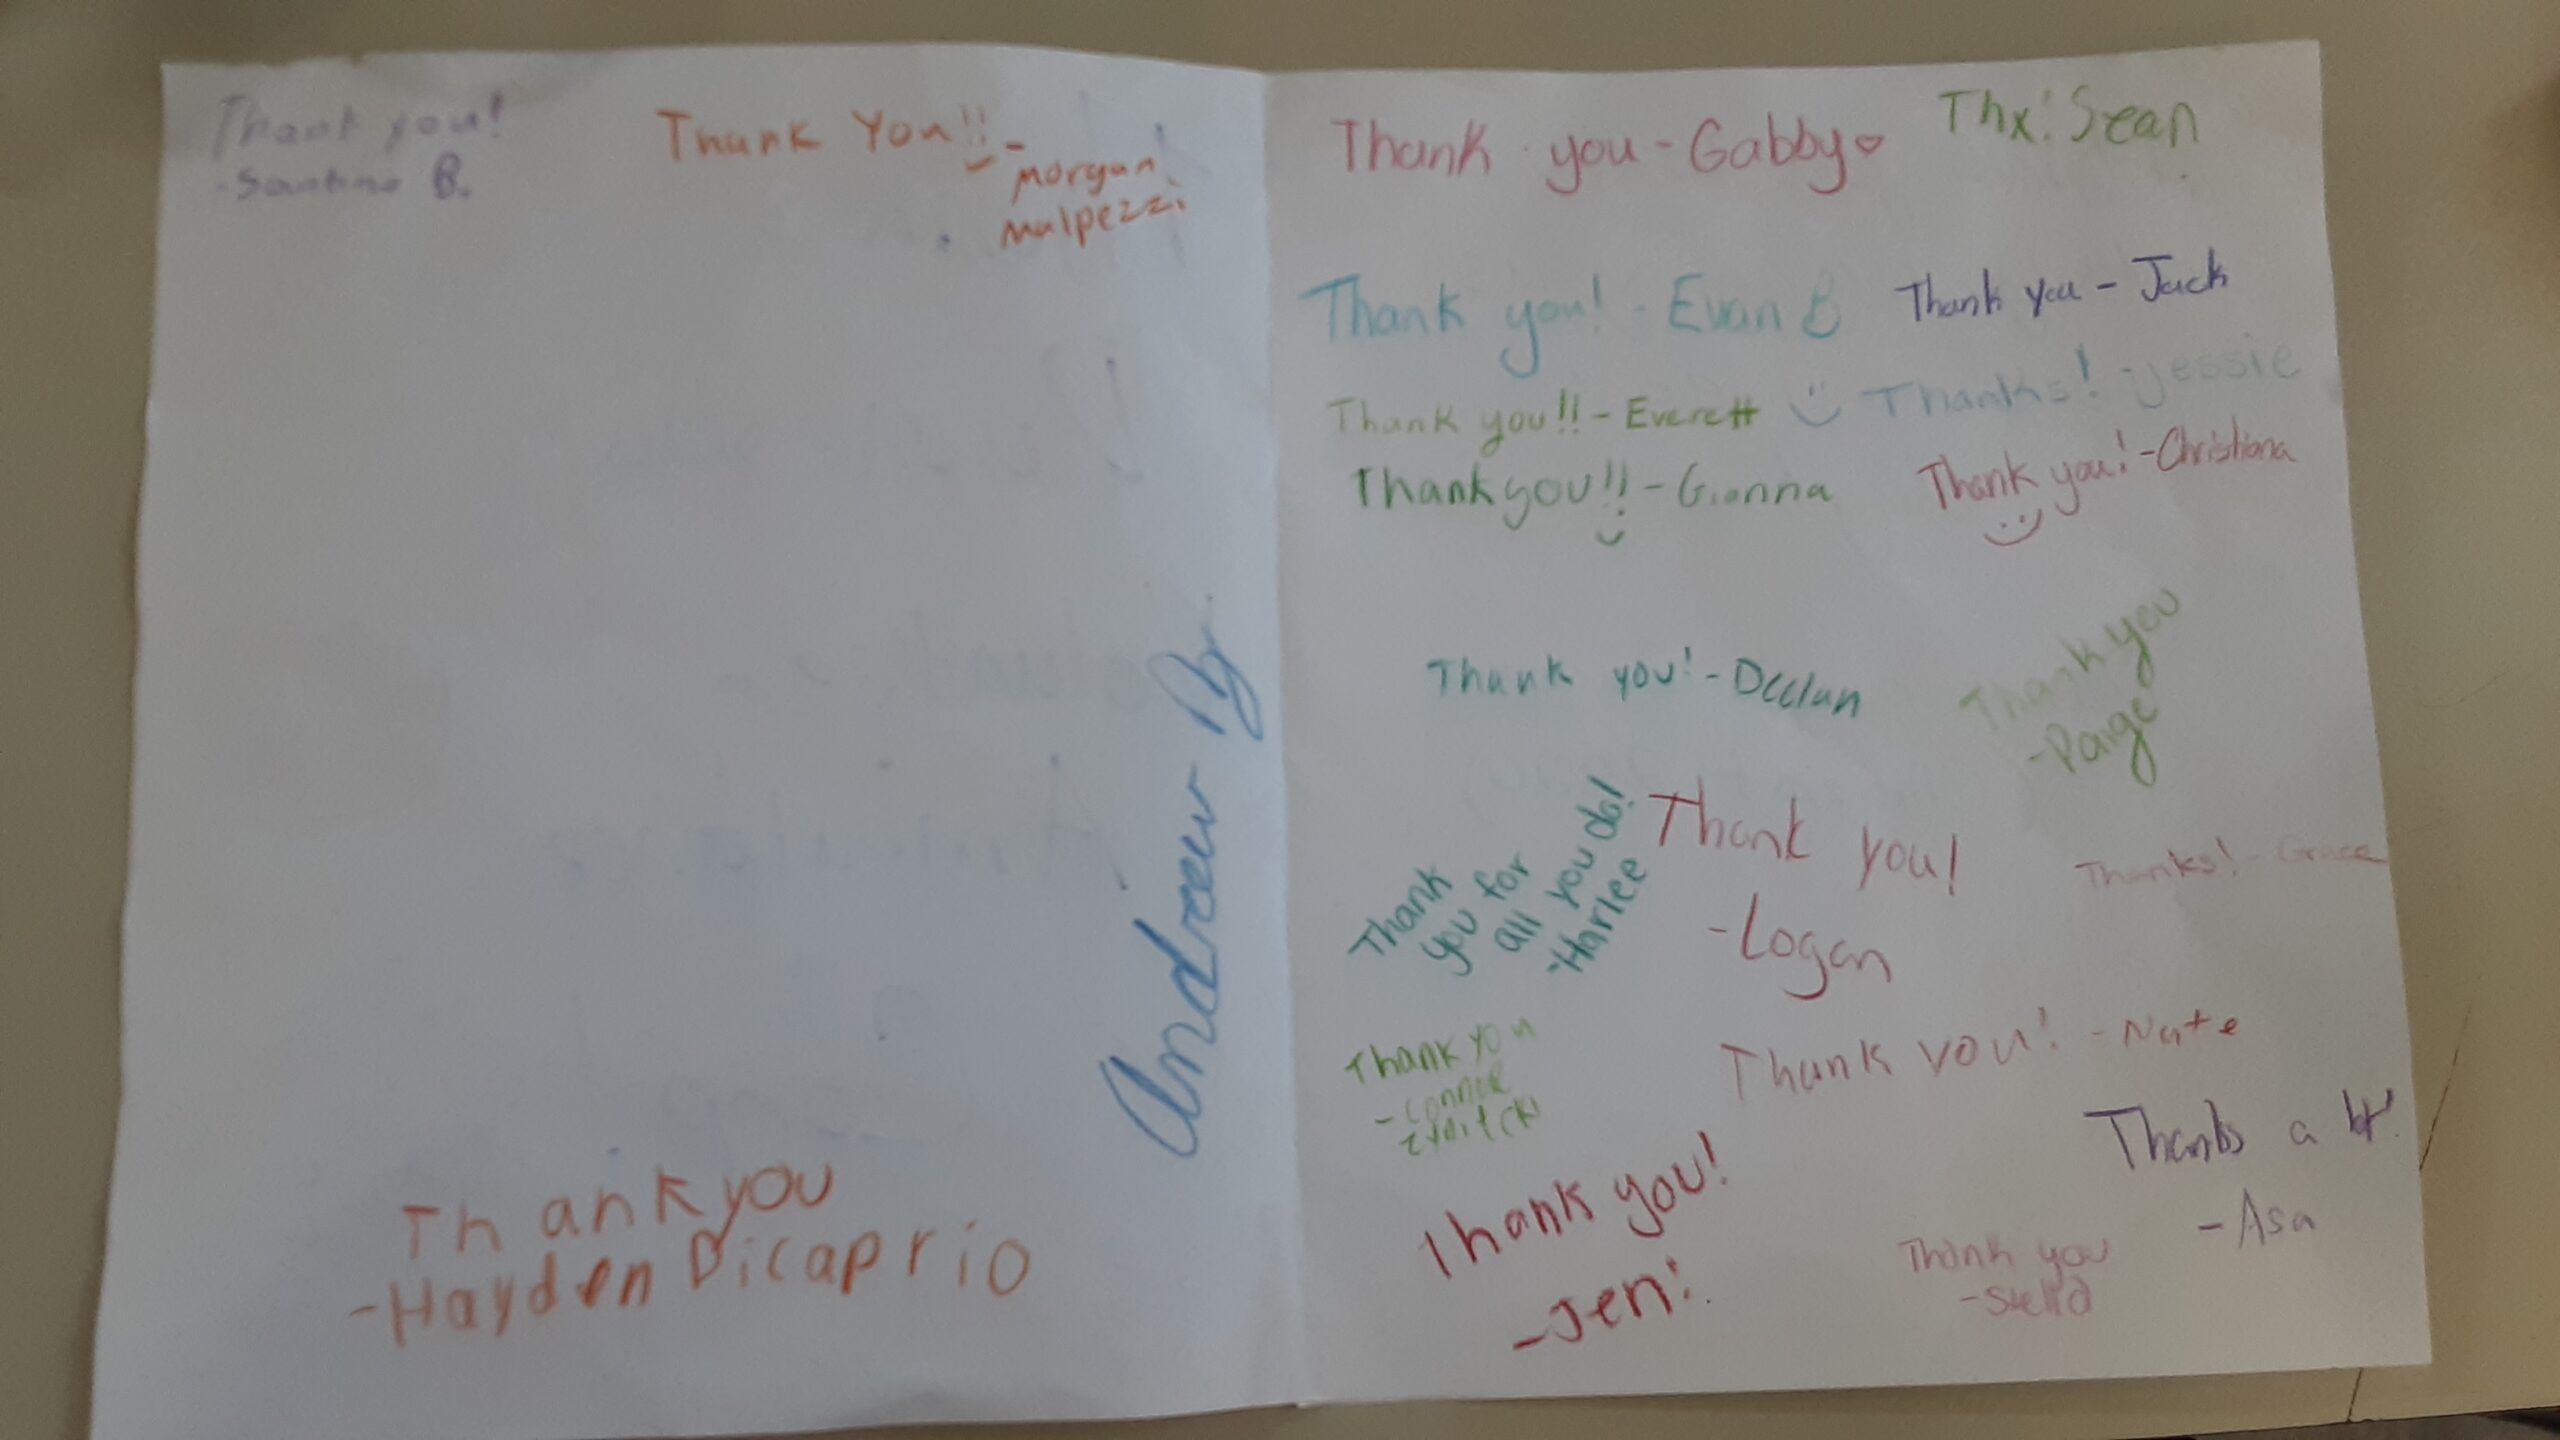 Thank you!
- Santino B.
Thank You!! -
morgan
malpezzi
Andrew
Thankyou
-Hayden Dicaprio
Thank you - Gabby
Thx! Sean
Thank you! - Evan
Thank you - Jack
Thank you!! - Everett
Thanks! - Jessie
Thank you!! - Gianna
Thank you! - Christiana
Thank you! - Declan
Thank you
- Paige
Thank
you for
all you do!
-Harlee
Thank you!
- Logan
Thanks! - Grace
Thank you
- Connor
Thank you! - Nate
Thanks a lot!
- Asa
Thank you!
- Jen
Thank you
- Stella